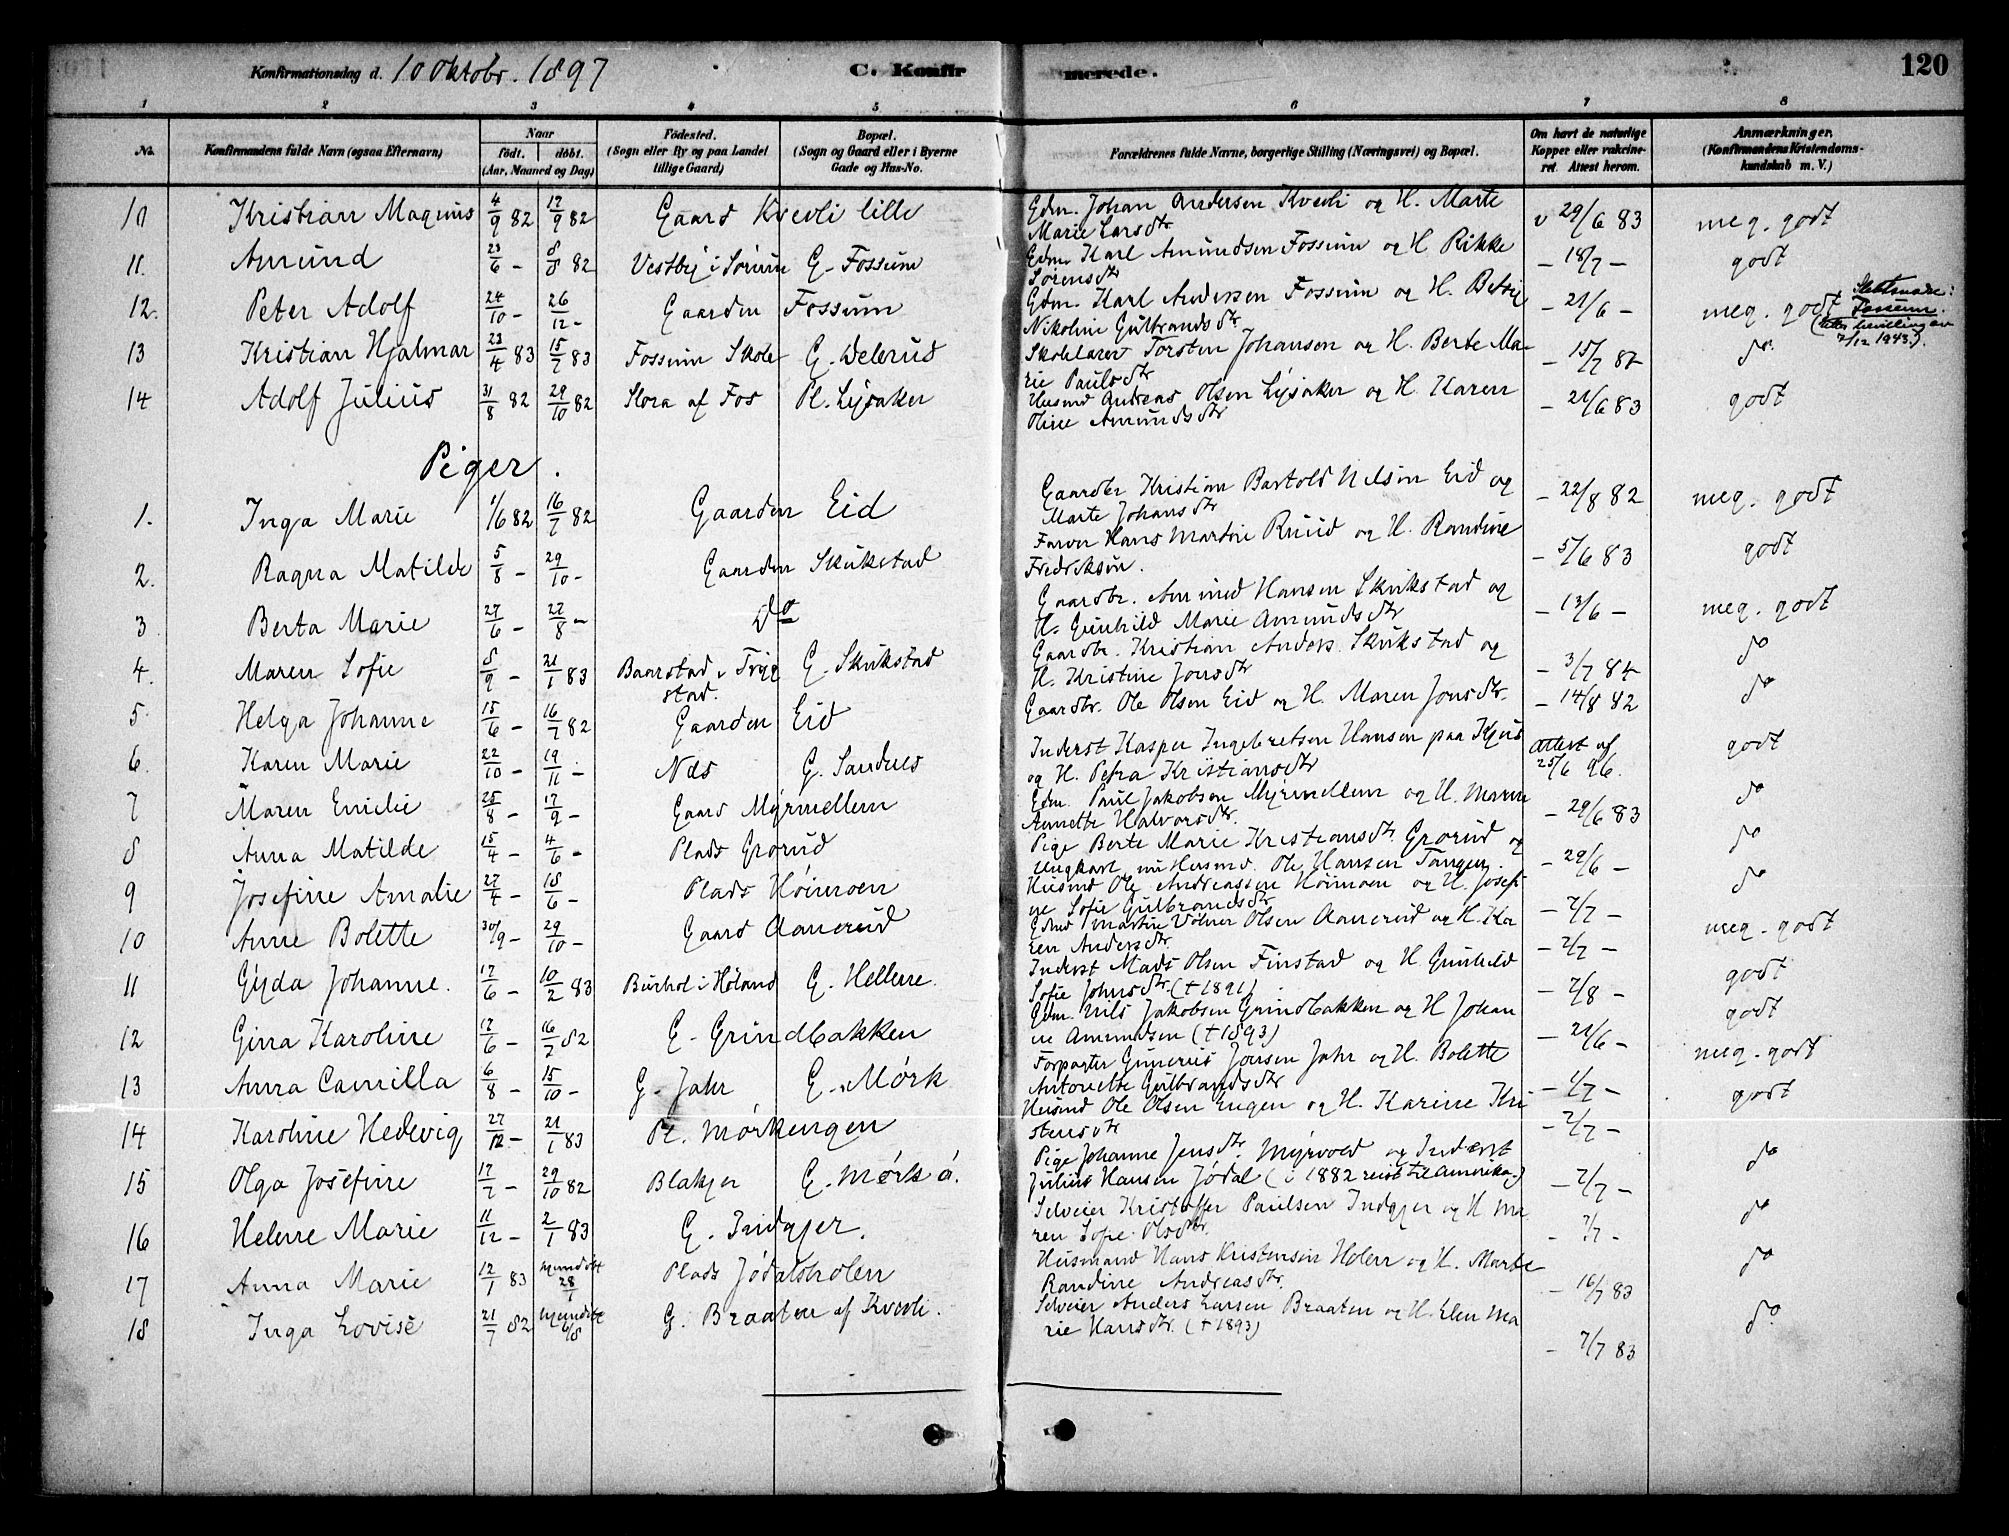 Konfirmationsdag d. 10 Oktobr. 1897 C. Konfirmerede. 120
1 2 3 4 5 6 7 8
No. Konfirmandens fulde Navn (ogsaa Efternavn) Naar født. døbt. (Aar, Maaned og Dag) Fødested. (Sogn eller By og paa Landet tillige Gaard) Bopæl. (Sogn og Gaard eller i Byerne Gade og Hus-No. Forældrenes fulde Navne, borgerlige Stilling (Næringsvei) og Bopæl. Om havt de naturlige Kopper eller vakcineret. Attest herom. Anmærkninger. (Konfirmandens Kristendomskundskab m. V.)
10 Kristian Magnus 4/9 82 17/9 82 Gaard Kvevli lille Gdm. Johan Andersen Kvevli og H. Marte
Marie Larsdtr v 29/6 83 meg. godt
11. Amund 23/6 - 8/8 82 Vestby i Sørum G. Fossum Gdm. Karl Amundsen Fossum og H Rikke
Sørensdtr - 18/7 - godt
12. Peter Adolf 24/10 - 26/12 - Gaarden Fossum Gdm. Karl Andersen Fossum og H.
Nikoline Gulbrandsdtr. - 21/6 - meg. godt
Fossum.
7/12 1943).
13 Kristian Hjalmar 23/4 83 15/7 83 Fossum Skole G. Delerud Skolelærer Torsten Johansen og H. Berte Ma-
rie Paulsdtr - 15/7 84 do
14 Adolf Julius 31/8 82 29/10 82 Slora af Fos Pl. Lysaker Husmd Andreas Olsen Lysaker og H. Karen
Oline Amundsdtr - 21/6 83 godt
Piger.
1. Inga Marie 1/6 82 16/7 82 Gaarden Eid Gaardbr Kristian Bartold Nilsen Eid og
Marte Johansdtr - 22/8 82 meg. godt
2. Ragna Matilde 5/8 - 29/10 - Gaarden Skukstad Farver Hans Martin Ruud og H. Randine
Fredriksen. - 5/6 83 godt
3 Berta Marie 27/6 - 27/8 - Do Gaardbr. Amund Hansen Skukstad og
H. Gunhild Marie Amundsdtr - 13/6 - meg. godt
4. Maren Sofie 8/9 - 21/1 83 Baarstad i Trygstad. G. Skukstad Gaardbr. Kristian Anders. Skukstad og
H. Kristine Jonsdtr - 3/7 84 do
5. Helga Johanne 15/6 - 16/7 82 Gaarden Eid Gaardbr. Ole Olsen Eid og H. Maren Jonsdtr. - 14/8 82 do
6. Karen Marie 22/10 - 19/11 - Næs G. Sandnes Inderst Kasper Ingebretsen Hansen paa
og H. Petra Kristiansdtr Attest af 25/6 96. godt
7 Maren Emilie 25/8 - 17/9 - Gaard Myrmellem Gdm. Paul Jakobsen Myrmellem og H. Maren
Annette Halvorsdtr. - 29/6 83 do
8 Anna Matilde 15/4 - 4/6 - Plads Grorud Pige Berte Marie Kristiansdtr Grorud og
Ungkarl nu Husmd. Ole Hansen Tangen. - 29/6 - do
9 Josefine Amalie 27/4 - 18/6 - Plads Høimoen Husmd Ole Andreassen Høimoen og H. Josefi-
ne Sofie Gulbrandsdtr - 7/7 - do
10 Anne Bolette 30/9 - 29/10 - Gaard Aanerud Gdmd Martin Volmer Olsen Aanerud og H. Ka
ren Andersdtr. - 2/7 - meg. godt
11 Gyda Johanne. 17/6 - 10/2 83 Burhol i Høland G. Hellene. Inderst Mads Olsen Finstad og H Gunhild
Sofie Johnsdtr. († 1891) - 2/8 - godt
12 Gina Karoline 17/6 - 16/7 82 G. Grindbakken Gdm. Nils Jakobsen Grindbakken og H Johan
ne Amundsen († 1893) - 21/6 - godt
13 Anna Camilla 6/8 - 15/10 - G. Jahr G. Mørk Forpagter Gunerius Jonsen Jahr og H. Bolette
Antonette Gulbrandsdtr - 1/7 - meg. godt
14 Karoline Hedevig 27/12 - 21/1 83 Pl. Mørkengen Husmd Ole Olsen Engen og H. Karine Kri
stensdtr - 2/7 - godt
15 Olga Josefine 17/7 - 29/10 82 Blakjer G. Mørk ø. Pige Johanne Jensdtr. Myrvold og Inderst
Julius Hansen Jødal (i 1882 reist til Amerika.) - 2/7 - do
16 Helene Marie 11/12 - 2/1 83 G. Indgjer. Selveier Kristoffer Paulsen Indgjer og H Ma
ren Sofie Olsdtr. - 7/7 - do
17 Anna Marie 12/1 83 28/1 Plads Jødalsholen Husmand Hans Kristensen Holen og H. Marte
Randine Andreasdtr. - 16/7 83 do
18 Inga Lovise 21/7 82 6/8 G. Braaten af Kvevli. Selveier Anders Larsen Braaten og H. Elen Ma
rie Hansdtr. († 1893) - 7/7 83 do